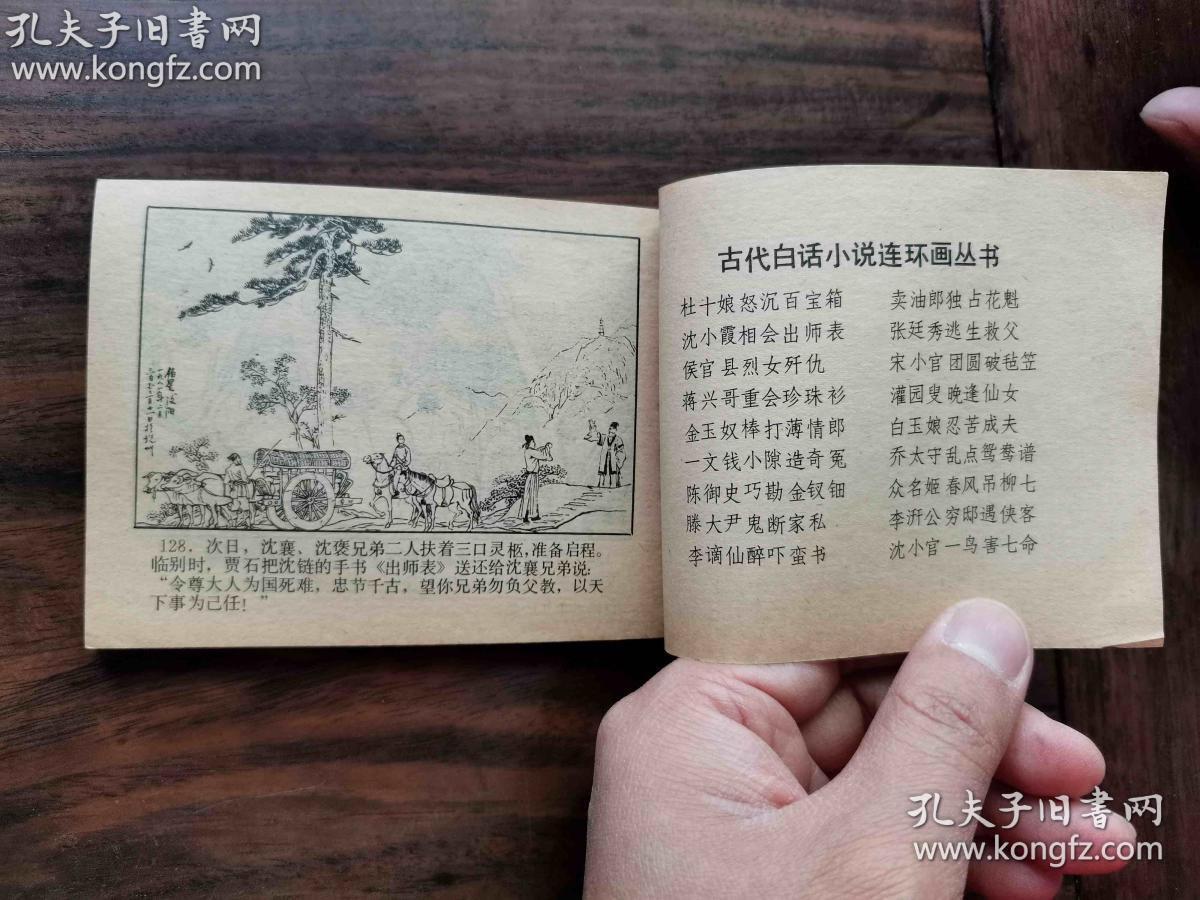 孔夫子旧書网
www.kongfz.com
128. 次日，沈襄、沈褒兄弟二人扶着三口灵柩，准备启程。
临别时，贾石把沈链的手书《出师表》送还给沈襄兄弟说：
“令尊大人为国死难，忠节千古，望你兄弟勿负父教，以天
下事为己任！”
古代白话小说连环画丛书
杜十娘怒沉百宝箱
沈小霞相会出师表
侯官县烈女歼仇
蒋兴哥重会珍珠衫
金玉奴棒打薄情郎
一文钱小隙造奇冤
陈御史巧勘金钗钿
滕大尹鬼断家私
李谪仙醉吓蛮书
卖油郎独占花魁
张廷秀逃生救父
宋小官团圆破毡笠
灌园叟晚逢仙女
白玉娘忍苦成夫
乔太守乱点鸳鸯谱
众名姬春风吊柳七
李汧公穷邸遇侠客
沈小官一鸟害七命
孔夫子旧書网
www.kongfz.com